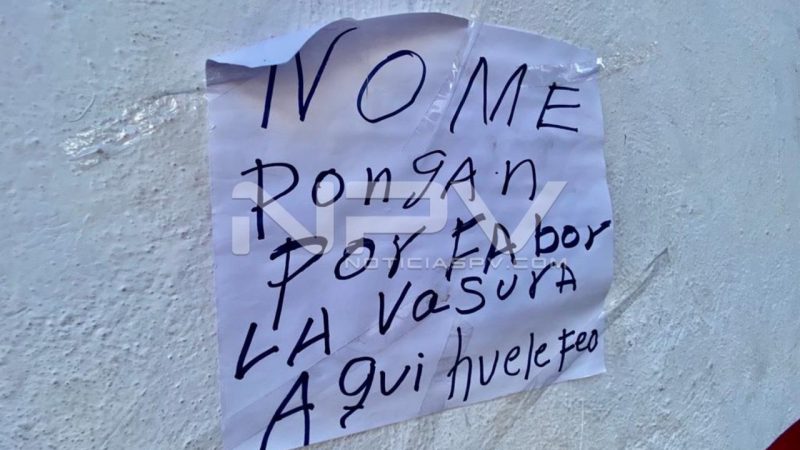 NO ME
pongan
por FAbor
LA vasurA
Aqui huele Feo
NPV
NOTICIASPV.COM